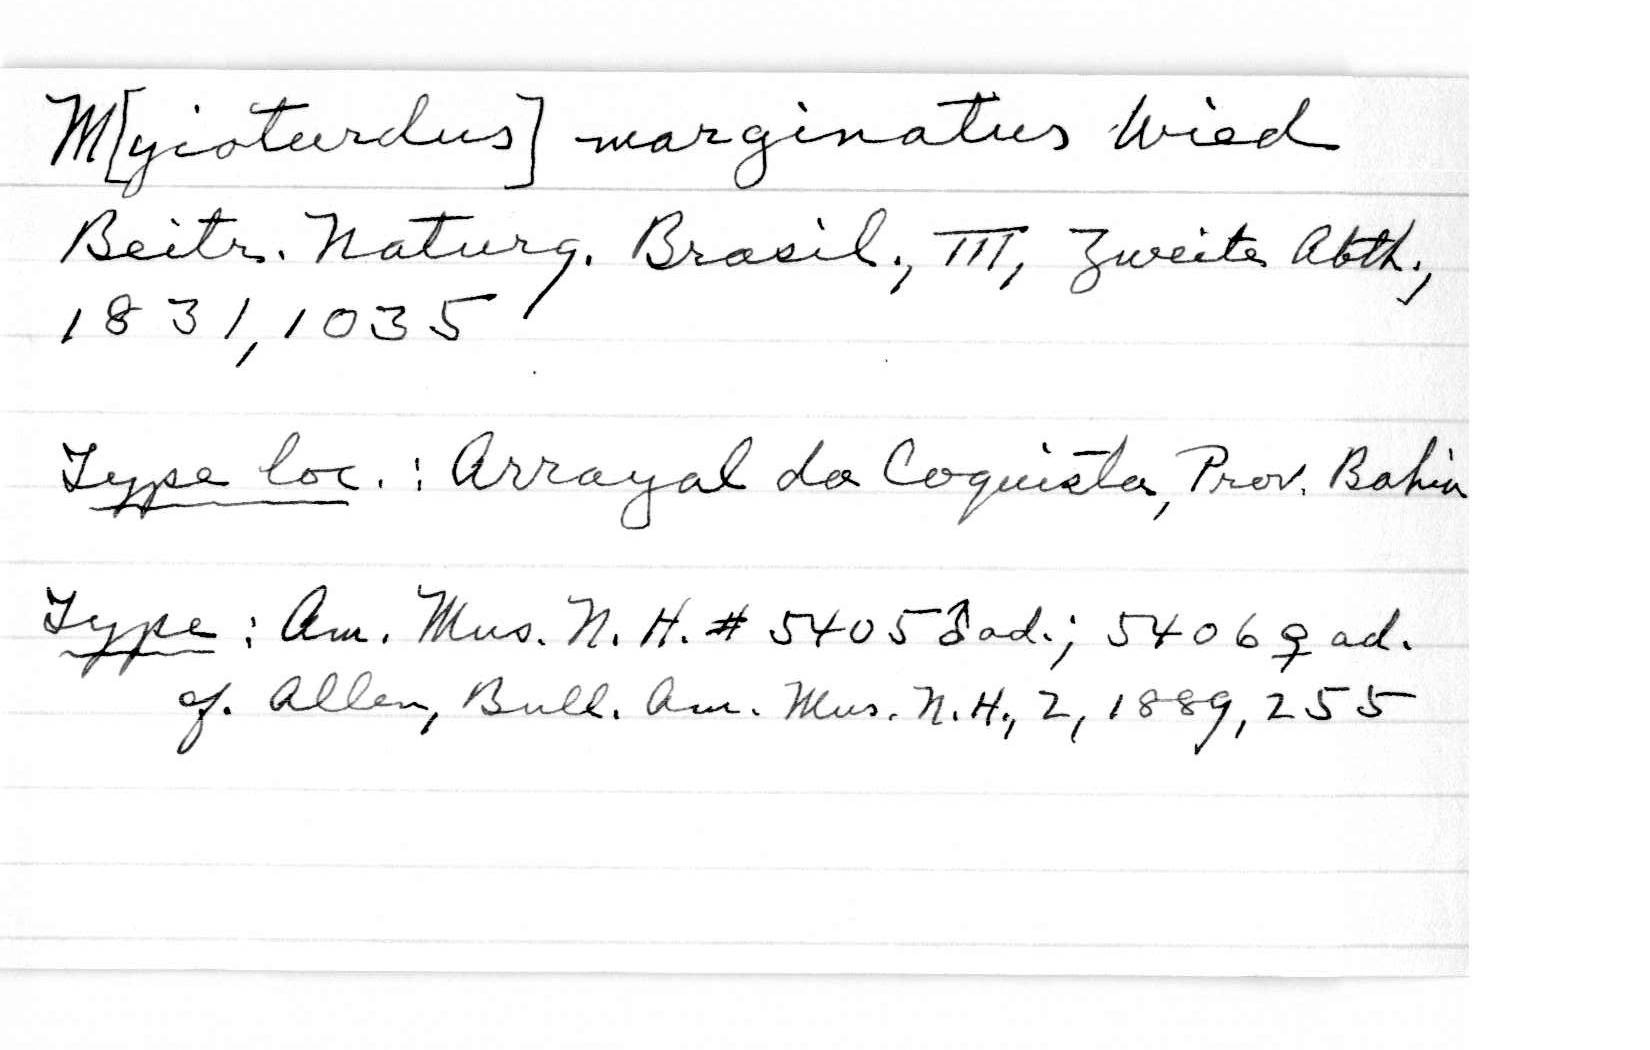 M[yioturdus] marginatus Wied
Beitr. Naturg. Brasil., III, Zweite Abth.,
1831, 1035
Type loc.: Arrayal da Coquista, Prov. Bahia
Type: Am. Mus. N. H. # 5405 ♂ ad.; 5406 ♀ ad.
cf. Allen, Bull. Am. Mus. N.H., 2, 1889, 255